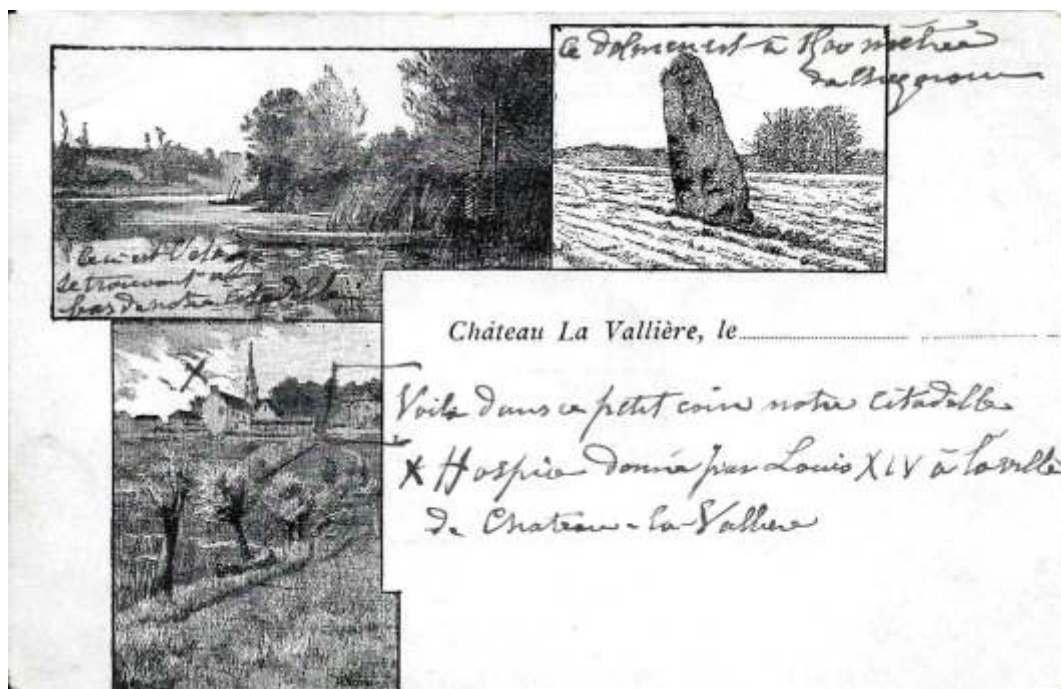 ce dolmen est à 1500 mètres
Ceci est l'étang
se trouvant au
bas de notre citadelle
Château La Vallière, le
Voilà dans ce petit coin notre citadelle
X Hospice donné par Louis XIV à la ville
de Chateau-la-Valliere